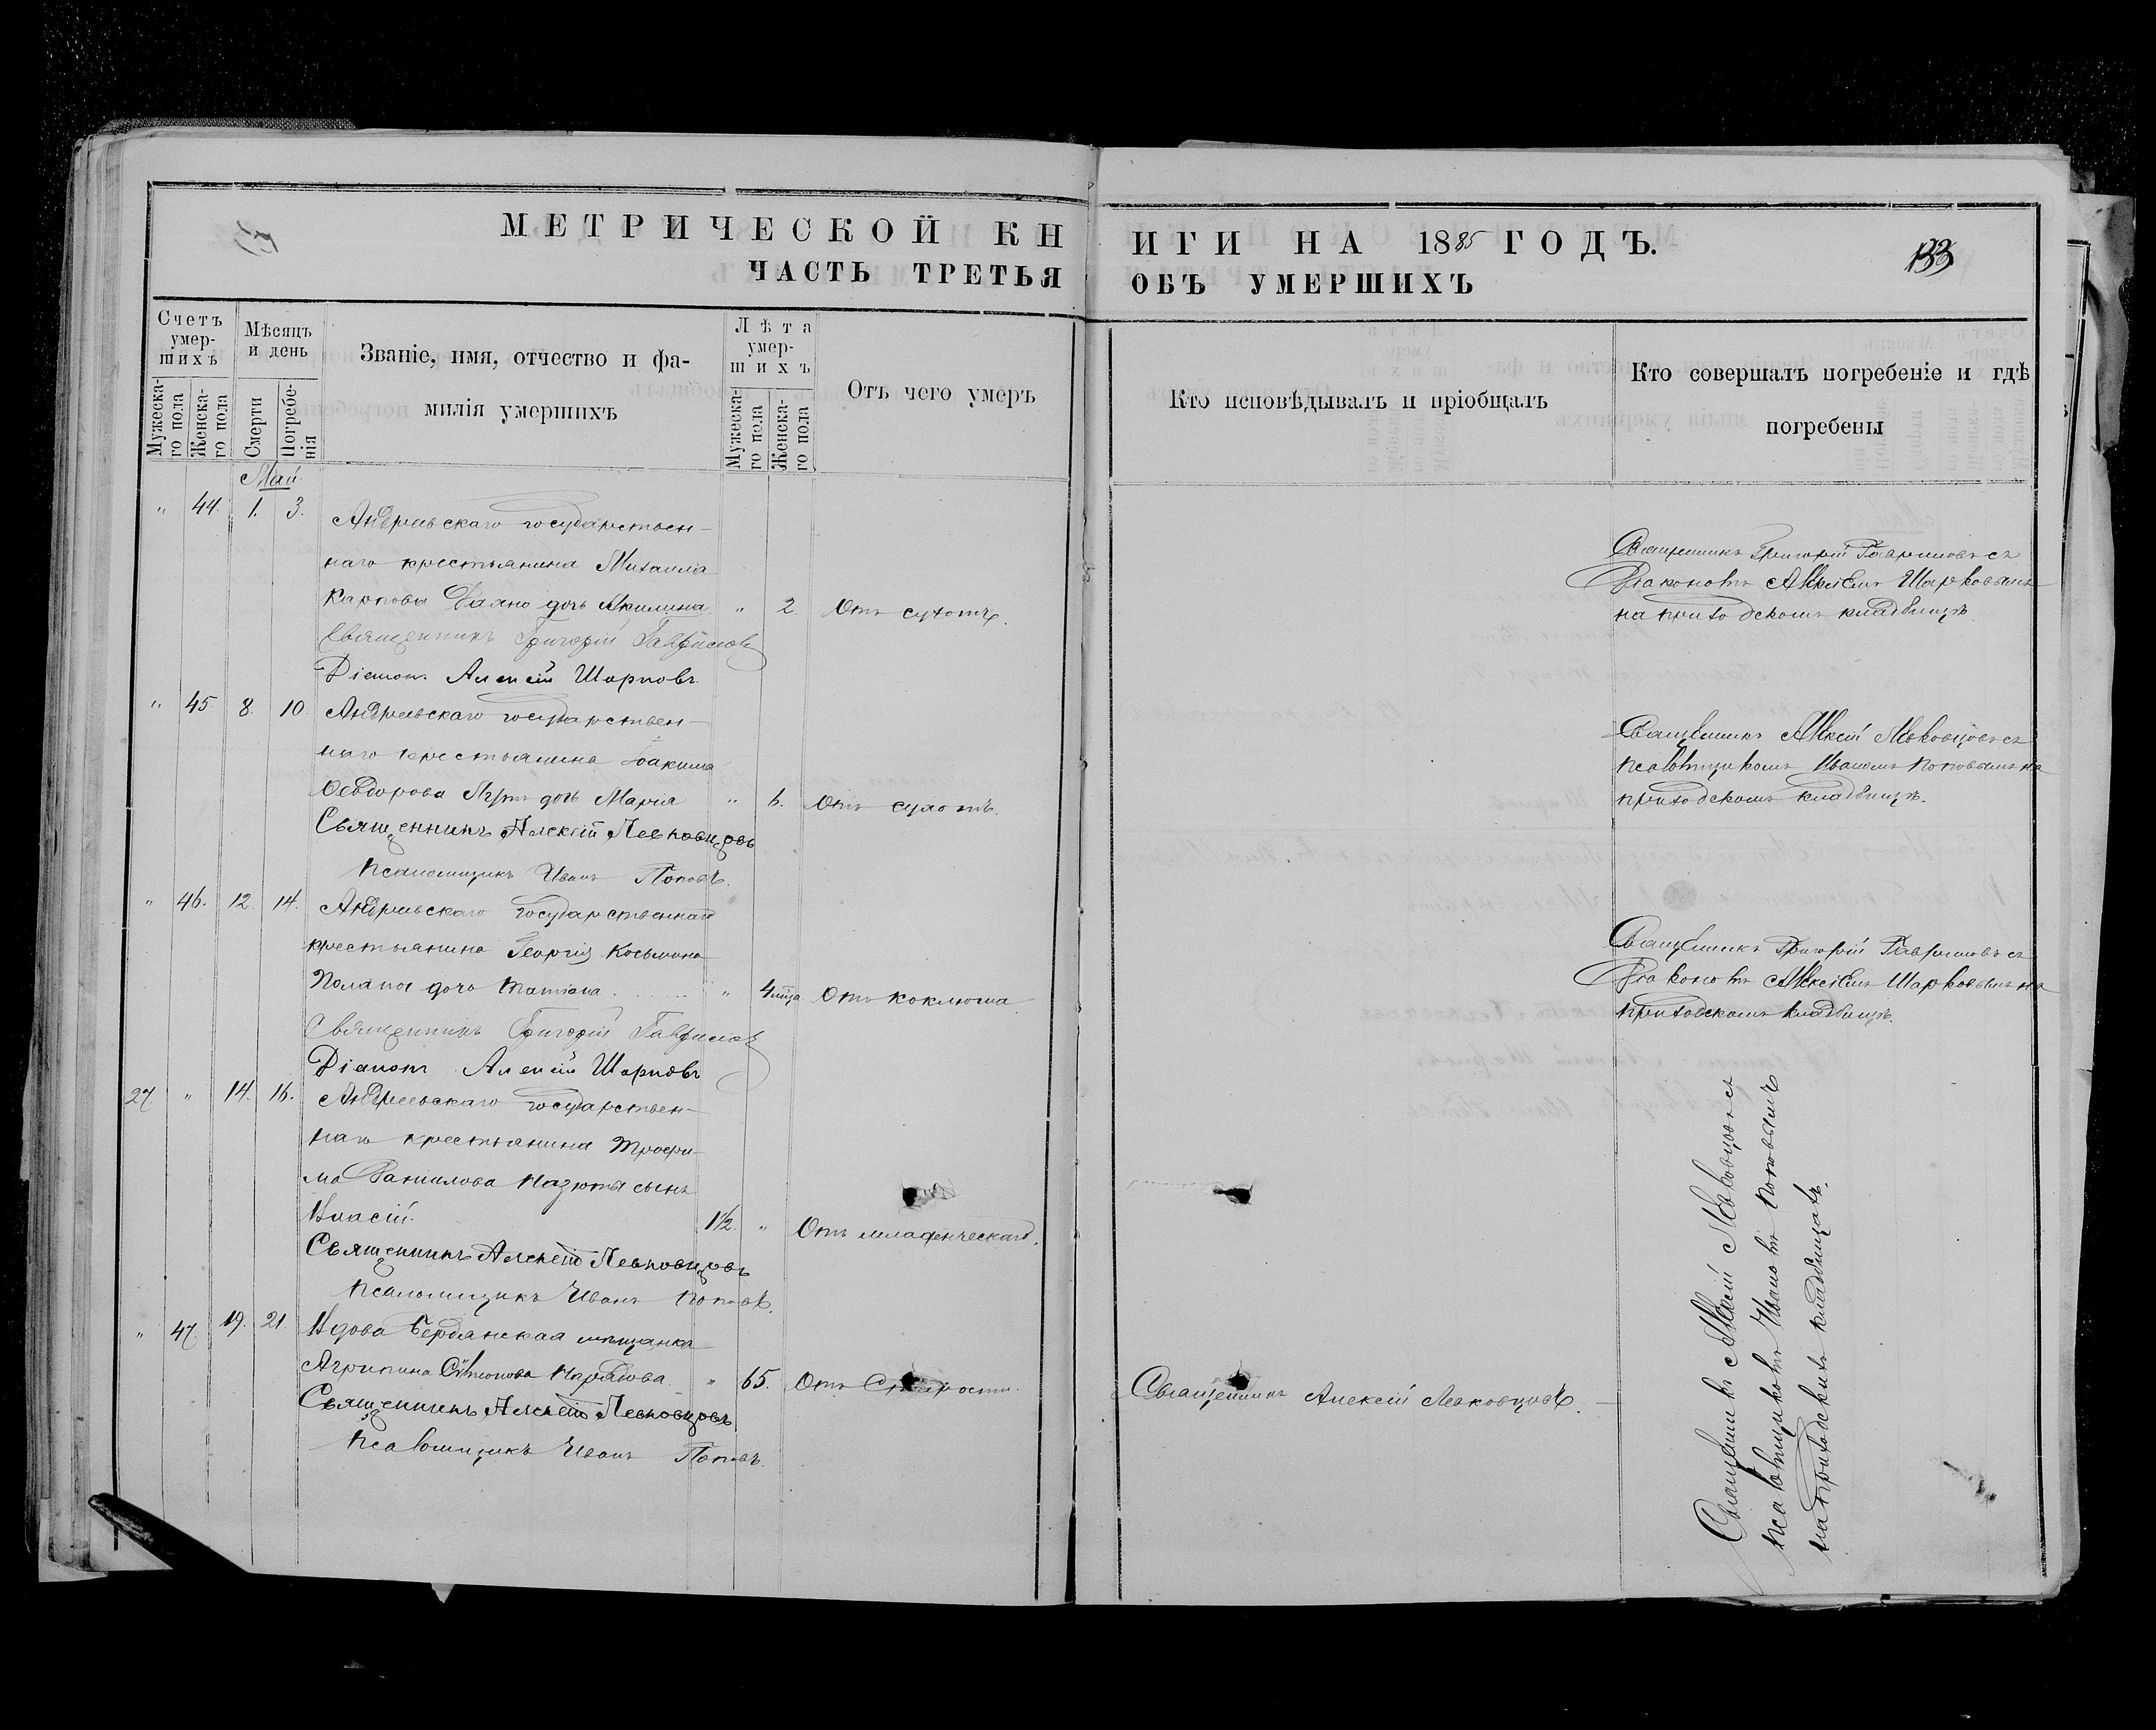 МЕТРИЧЕСКОЙ КНИГИ НА 1885 ГОДЪ.
133
ЧАСТЬ ТРЕТЬЯ ОБЪ УМЕРШИХЪ
Счетъ умер-шихъ
Мужеска-го пола
Женска-го пола
Мѣсяцъ и день
Смерти
Погребе-нія
Званіе, имя, отчество и фа-
милія умершихъ
Лѣта умер-шихъ
Мужеска-го пола
Женска-го пола
Отъ чего умеръ
Кто исповѣдывалъ и пріобщалъ
Кто совершалъ погребеніе и гдѣ
погребены
Май
" 44. 1. 3. Андреевскаго государствен-
наго крестьянина Михаила
Карпова дочь Акилина " 2. Отъ сухотъ.
Священникъ Григорій Гавриловъ
Діакон. Алексій Шарковъ.
Священникъ Григорій Гавриловъ съ
Діакономъ Алексіемъ Шарковымъ
на приходскомъ кладбищѣ.
" 45. 8. 10. Андреевскаго государствен-
наго крестьянина Іоакима
Ѳеодорова дочь Марія " 6. Отъ сухотъ.
Священникъ Алексій Левковцовъ
Псаломщикъ Иванъ Поповъ.
Священникъ Алексій Левковцовъ съ
псаломщикомъ Иваномъ Поповымъ на
приходскомъ кладбищѣ.
" 46. 12. 14. Андреевскаго государственнаго
крестьянина Георгія Косьмина
дочь Татіана " 4 мѣс. Отъ коклюша
Священникъ Григорій Гавриловъ
Діаконъ Алексій Шарковъ
Священникъ Григорій Гавриловъ съ
Діакономъ Алексіемъ Шарковымъ на
приходскомъ кладбищѣ.
27. " 14. 16. Андреевскаго государствен-
наго крестьянина Трофи-
ма Данилова сынъ
Власій. 1½. " Отъ младенческаго.
Священникъ Алексій Левковцовъ
Псаломщикъ Иванъ Поповъ.
" 47. 19. 21. Вдова Бердянская мѣщанка
Агрипина Симеонова " 65. Отъ Старости.
Священникъ Алексій Левковцовъ
Псаломщикъ Иванъ Поповъ.
Священникъ Алексій Левковцовъ.
Священникъ Алексій Левковцовъ съ
псаломщикомъ Иваномъ Поповымъ
на приходскихъ кладбищахъ.